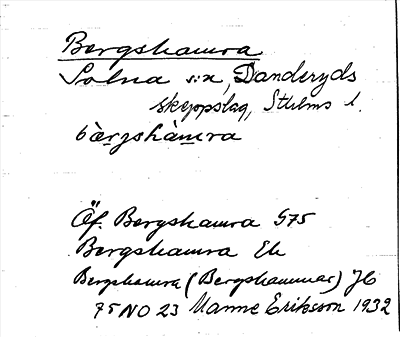 Bergshamra
Solna s:n, Danderyds
skeppslag, Sthlms l.
bæ̀rgshàmra
Öf. Bergshamra G75
Bergshamra Ek
Bergshamra (Bergshammar) JC
75 NO 23 Manne Eriksson 1932